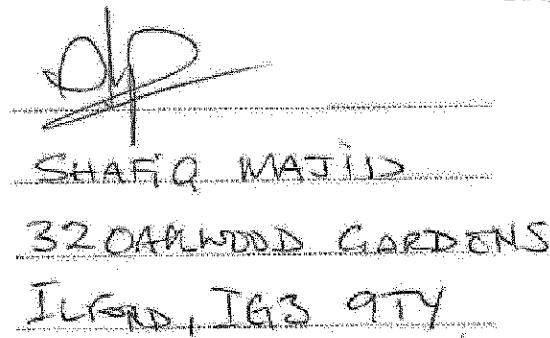 SHAFiQ MAJiD
32 OAKWOOD GARDENS
ILFORD, IG3 9TY